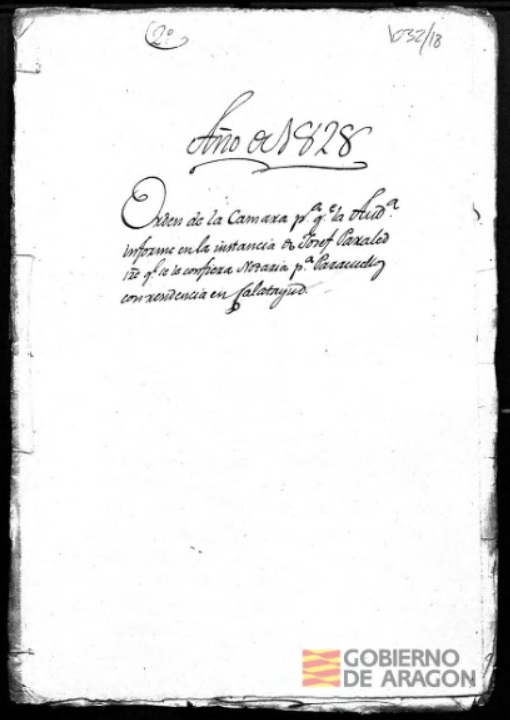 2º
1032/18
Año de 1828
Orden de la Camara pª qe la Audª
informe en la instancia de Josef Paxaled
se le confiera Notaria pª Paracuellos
con residencia en Calatayud.
GOBIERNO
DE ARAGON